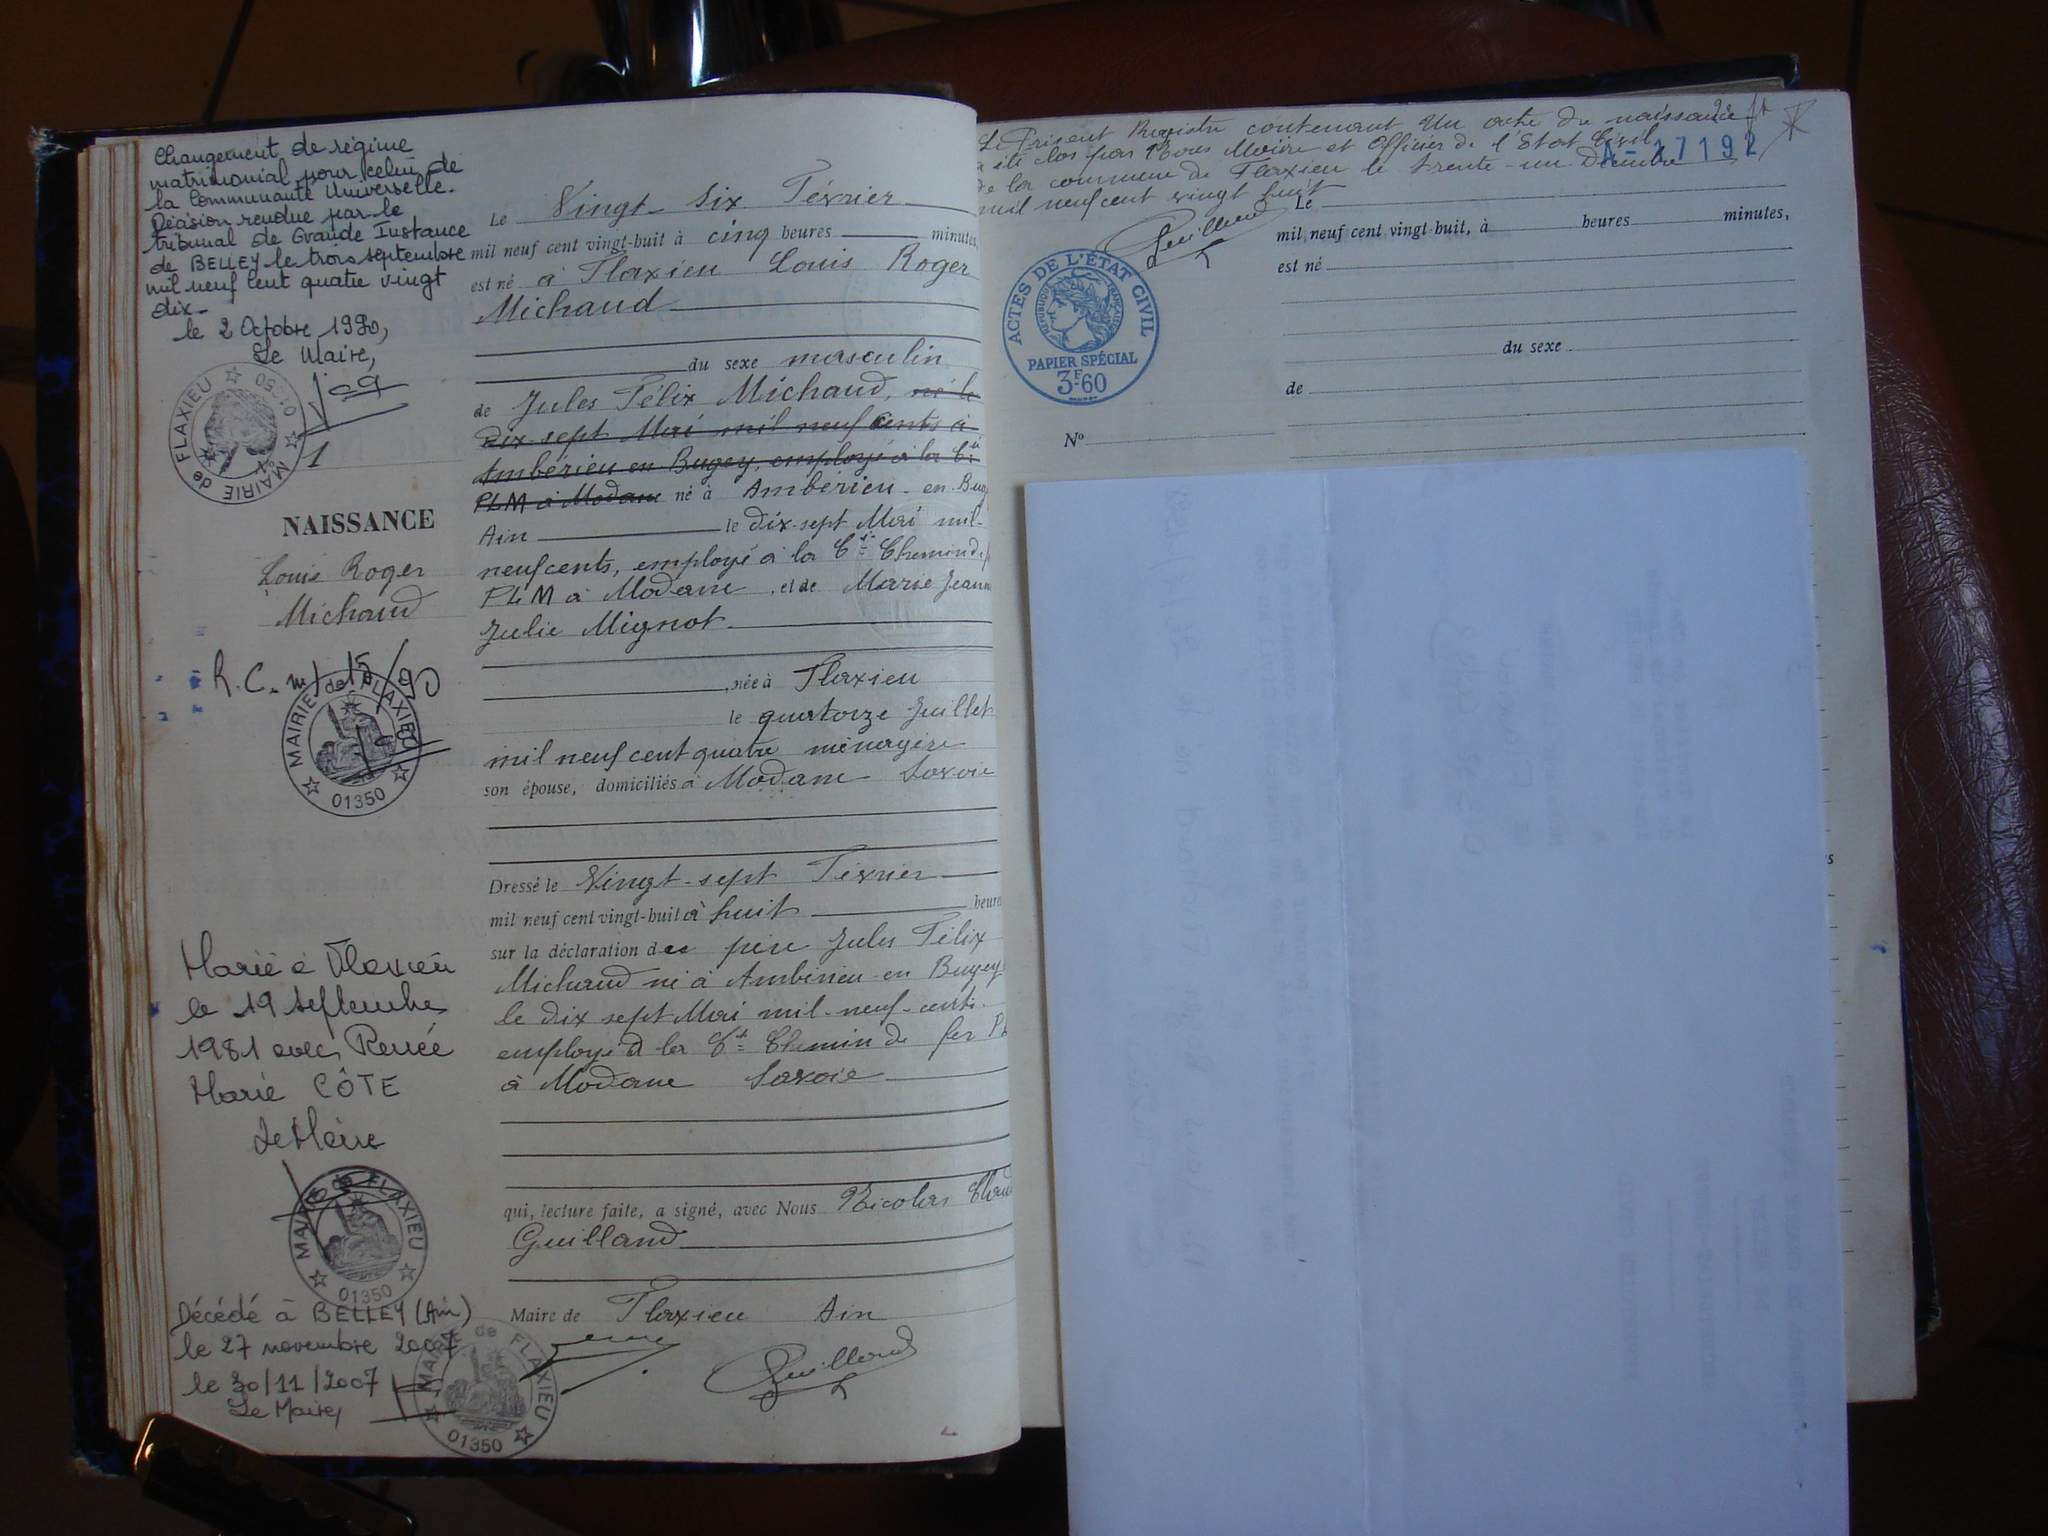 Changement de régime
matrimonial pour celui de
la Communauté Universelle.
Décision rendue par le
tribunal de Grande Instance
de BELLEY le trois septembre
mil neuf cent quatre vingt
dix.
le 2 Octobre 1990,
Le Maire,
MAIRIE de FLAXIEU
01350
1
NAISSANCE
Louis Roger
Michaud
R.C.
MAIRIE de FLAXIEU
01350
Marié à Flaxieu
le 19 septembre
1981 avec Renée
Marie CÔTE
Le Maire
MAIRIE de FLAXIEU
01350
Décédé à BELLEY (Ain)
le 27 novembre 2007
le 30/11/2007
Le Maire,
MAIRIE de FLAXIEU
01350
Le Vingt-six Février
mil neuf cent vingt-huit à cinq heures minutes,
est né à Flaxieu Louis Roger
Michaud
du sexe masculin
de Jules Félix Michaud, né le
dix-sept Mai mil neuf cents à
Ambérieu en Bugey, employé à la Cie
PLM à Modane né à Ambérieu-en-Bug
Ain le dix-sept Mai mil-
neuf cents, employé à la Cie Chemin de
PLM à Modane, et de Marie Jeanne
Julie Mignot.
née à Flaxieu
le quatorze Juillet
mil neuf cent quatre ménagère
son épouse, domiciliés à Modane Savoie
Dressé le Vingt-sept Février
mil neuf cent vingt-huit à huit heures
sur la déclaration du père Jules Félix
Michaud né à Ambérieu-en Bugey
le dix sept Mai mil-neuf-cents
employé à la Cie Chemin de fer PL
à Modane Savoie
qui, lecture faite, a signé, avec Nous Nicolas Claude
Guilland
Maire de Flaxieu Ain
Guilland
Le Présent Registre contenant Un acte de naissance
a été clos par Nous Maire et Officier de l'Etat Civil
de la commune de Flaxieu le trente-un Décembre
mil neuf cent vingt huit
Guilland
A-17192
ACTES DE L'ÉTAT CIVIL
RÉPUBLIQUE FRANÇAISE
PAPIER SPÉCIAL
3F60
Le
mil neuf cent vingt-huit, à heures minutes,
est né
du sexe
de
No